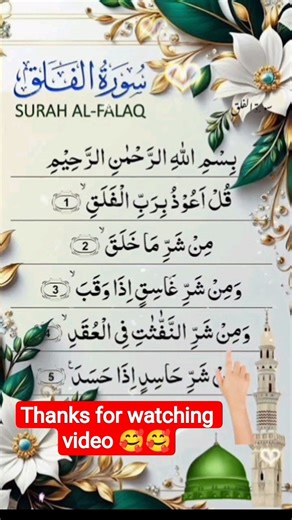 سُورَةُ الْفَلَق
SURAH AL-FALAQ
بِسْمِ اللهِ الرَّحْمٰنِ الرَّحِيْمِ
قُلْ اَعُوْذُ بِرَبِّ الْفَلَقِ ۙ 1
مِنْ شَرِّ مَا خَلَقَ ۙ 2
وَمِنْ شَرِّ غَاسِقٍ اِذَا وَقَبَ ۙ 3
وَمِنْ شَرِّ النَّفّٰثٰتِ فِى الْعُقَدِ ۙ
شَرِّ حَاسِدٍ اِذَا حَسَدَ 5
Thanks for watching
video 🥰🥰